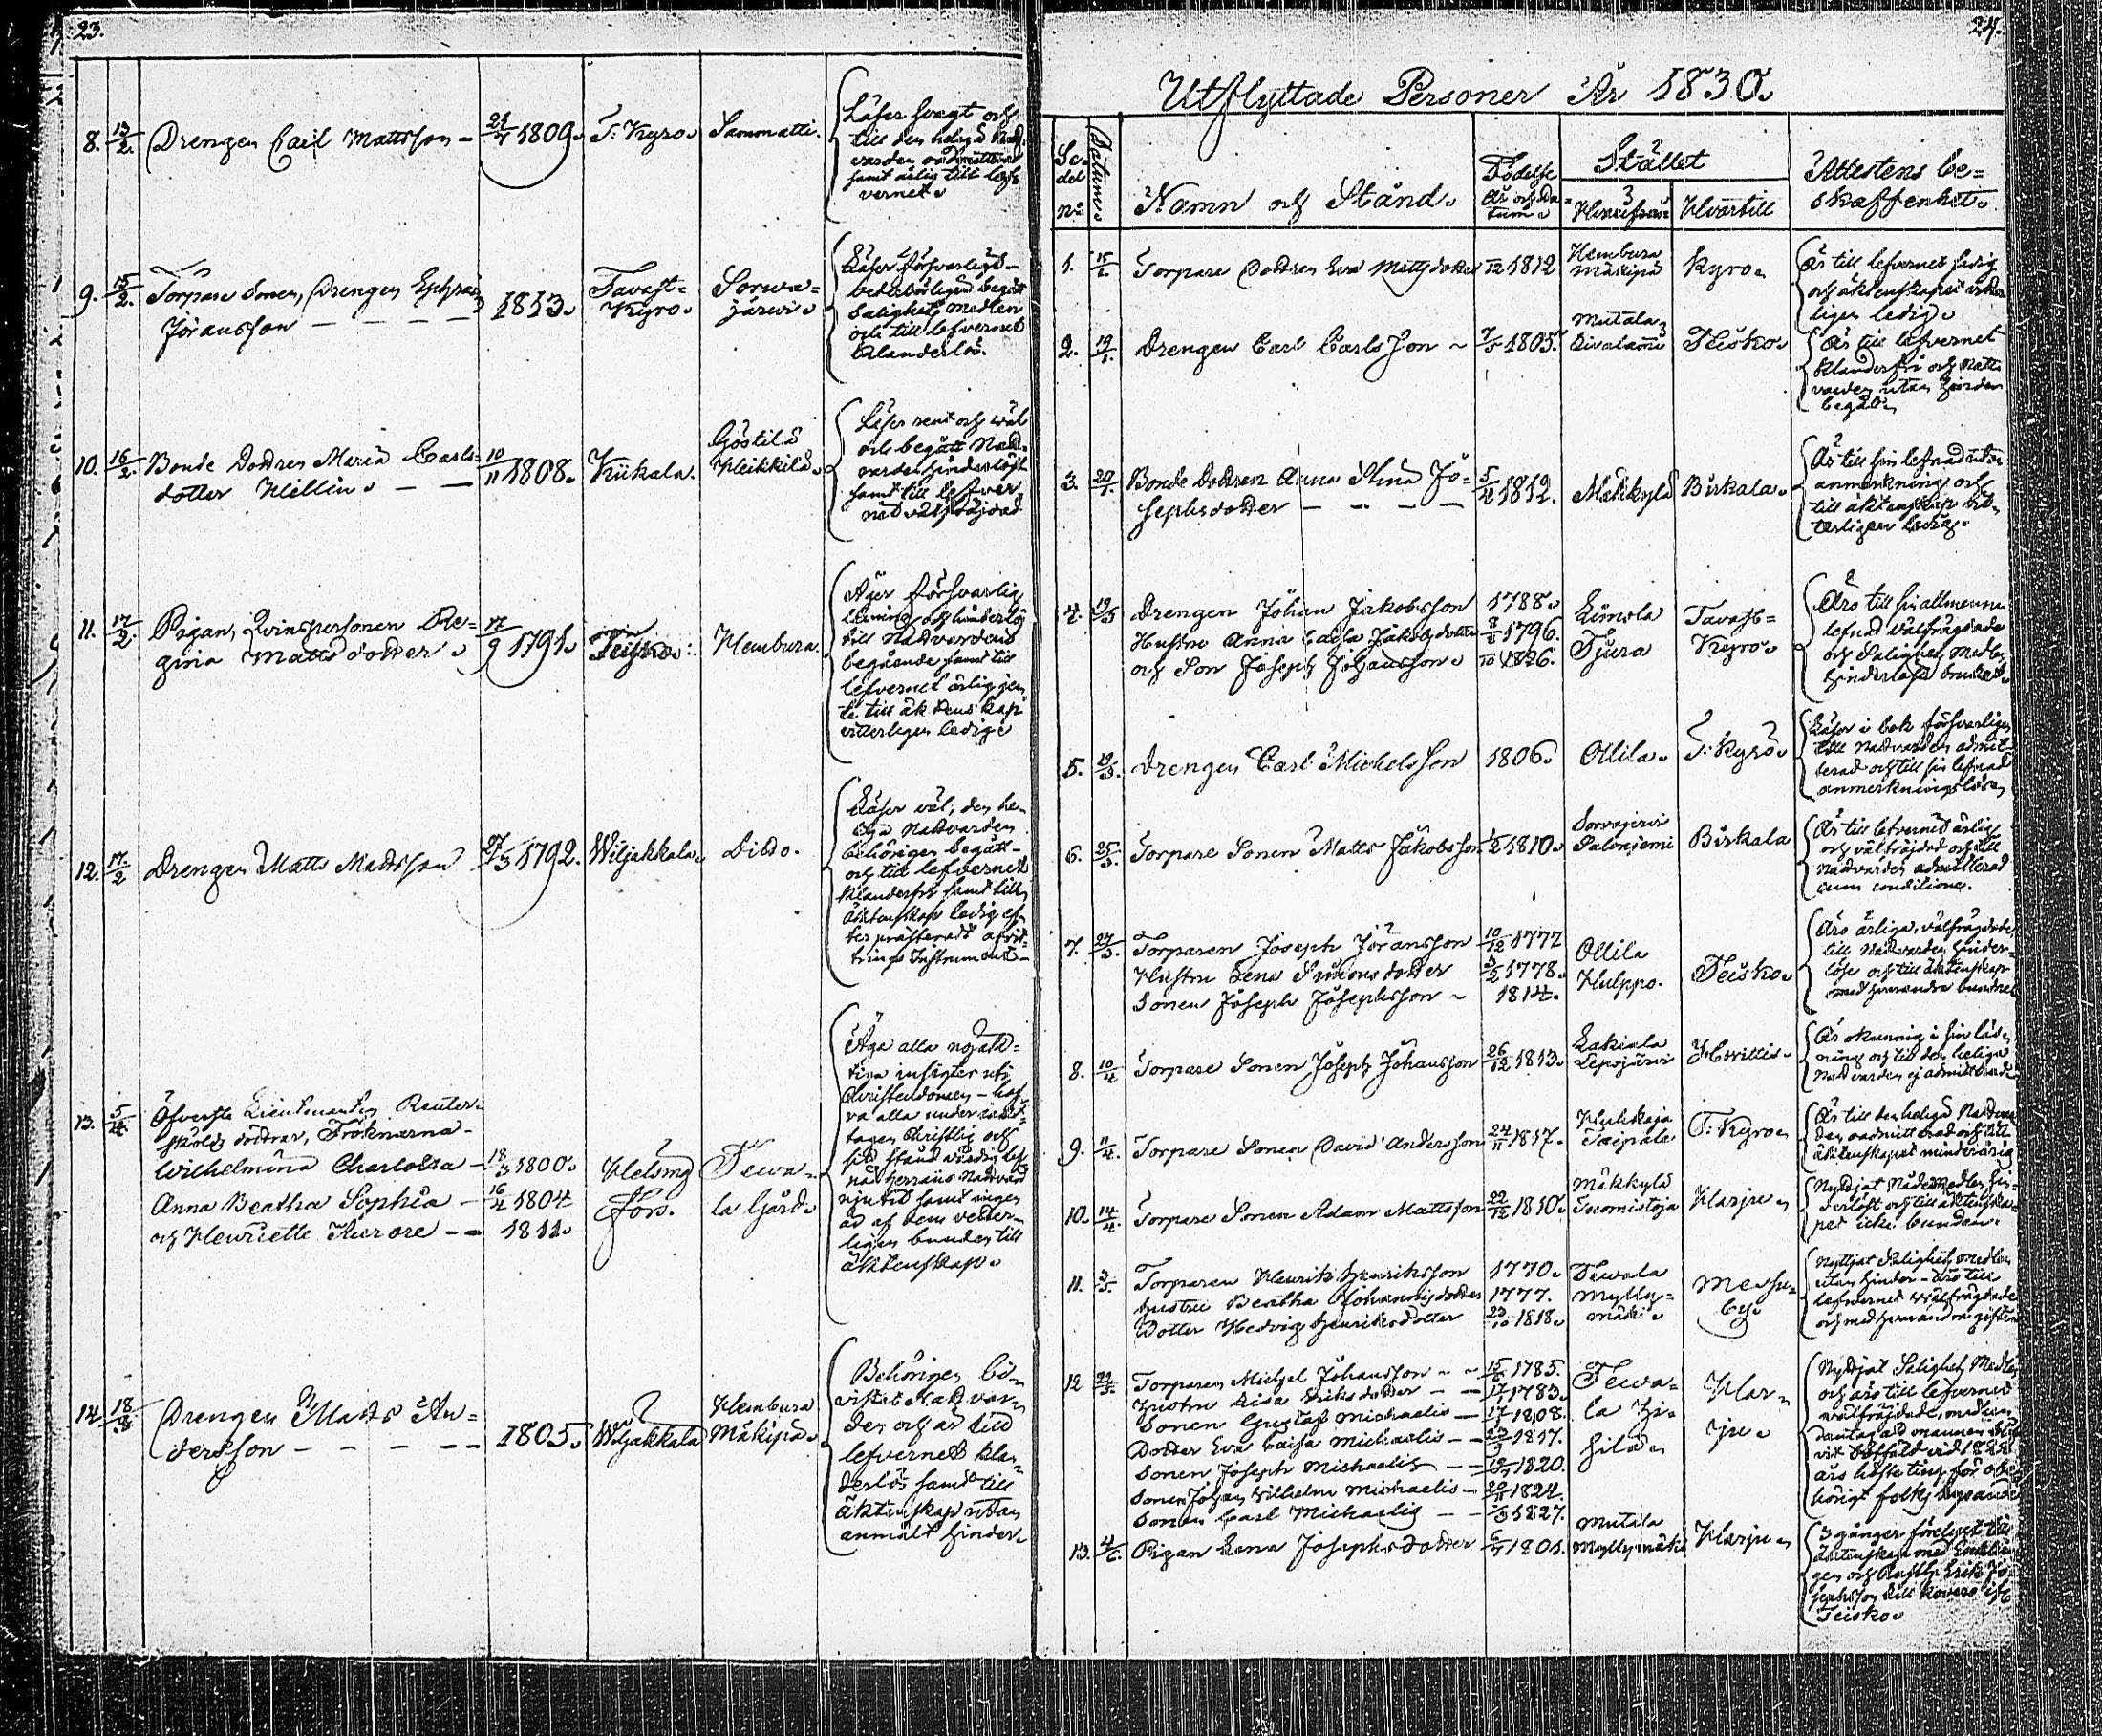 23.
8. 13/2. Drengen Carl Mattsson – 1809. T: Kyro. Sammatti.
Läser svagt och
till den helga Natt-
varden oadmitterad
samt ärlig till lef-
vernet.
9. 15/2. Torpare Sonen, Drengen Ephraim
Jöransson – – – – 1813. Tavast-
Kyro. Sorwa-
järwi.
Läser försvarligt –
behörigen begått
Salighets Medlen
och till lefvernet
klanderlös.
10. 16/2. Bonde Dottren Maria Carls-
dotter Hellin. – – 10/11 1808. Kiikala. Göstilä
Heikkilä.
Läser rent och wäl
och begått Natt-
varden hinderlöst
samt till lefver-
net välfräjdad
11. 17/2. Pigan, Qvinspersonen Re-
gina Matts dotter. 17/9 1791. Teisko. Hembura.
Äger försvarlig
läsning och hinderlös
till Nattvardens
begående samt till
lefvernet ärlig jem-
te till äktenskap
vitterligen ledig.
12. 17/2 Drengen Matts Mattsson 27/3 1792. Wiljakkala. Dito.
Läser väl, den he-
liga Nattvarden
behörigen begått –
och till lefvernet
klanderfri samt till
äktenskap ledig ef-
ter
13. 5/4. Öfverste Lieutnanten Reuter-
skölds döttrar, Fröknarna –
Wilhelmina Charlotta – 18/3 1800.
Anna Beatha Sophia – 16/4 1804
och Henriette Aurore – – 1811.
Helsing
fors. Tewa-
la Gård.
Äga alla nogak-
tiga insigter uti
Christendomen – haf-
va alla under
tagen Christlig och
sitt stånd värdig lef-
nad Herrans Nattvard
njutit samt ingen
äf af dem vetter-
ligen bunden till
äktenskap.
14. 18/4. Drengen Matts An-
dersson – – – – 1805. Wiljakkala Hembura
Mäkipä.
Behörigen be-
vistat Nattvar-
den och är till
lefvernet klan-
derlös samt till
äktenskap utan
anmält hinder.
24.
Utflyttade Personer År 1830.
Se-
del
No. Datum. Namn och Stånd. Födelse
År och Da-
tum. Stället
Hvarifrån Hvartill Attestens be-
skaffenhet.
1. 15/1. Torpare Dottren Eva Mattsdotter /12 1812 Hembura
Mäkipä Kyro.
Är till lefvernet
och äktenskapet
ligen ledig.
2. 19/1. Drengen Carl Carlsson ~ 7/5 1805. Mutala Teisko.
Är till lefvernet
klanderfri och Natt-
varden utan hinder
begått.
3. 20/1. Bonde Dottren Anna Stina Jo-
sephsdotter – – – – 5/4 1812. Mäkkylä Birkala.
Är till sin lefnad utan
anmerkning och
till äktenskap vit-
terligen ledig.
4. 19/3 Drengen Johan Jakobsson 1788.
Hustru Anna Caisa Jakobsdotter 8/8 1796.
och Son Joseph Johansson. /10 1826.
Limola
Tjura Tavast-
Kyro.
Äro till sin allmenna
lefnad välfrägdade
och Salighets Medlen
hinderlöst
5. 19/3. Drengen Carl Michelsson 1806. Ollila. T: Kyro.
Läser i bok försvarligen
till Nattvarden admit-
terad och till sin lefnad
anmerkningslös.
6. 25/3. Torpare Sonen Matts Jakobsson 1810. Sorvajervi
Palonjemi Birkala
Är till lefvernet ärlig
och välfräjdad och till
Nattvarden admitterad
cum conditione.
7. 27/3. Torparen Joseph Jöransson 10/12 1777
Hustru Lena Simonsdotter 3/2 1778.
Sonen Joseph Josephsson ~ 1814.
Ollila
Hulppo. Teisko.
Äro ärliga, välfrägdade
till Nattvarden hinder-
löse och till äktenskap
med hvarandra bundne
8. 10/4 Torpare Sonen Joseph Johansson 26/12 1813. Lakiala
Lepojärvi Hvittis.
Är okunnig i sin läs-
ning och till den heliga
Nattvarden ej admitterad.
9. 11/4. Torpare Sonen David Andersson 24/11 1817. Huhkaja
Taipale T. Kyro.
Är till den heliga Nattvar-
den oadmitterad och till
äktenskapet minderårig
10. 14/4. Torpare Sonen Adam Mattsson 22/12 1810. Mäkkylä
Tuomistoja Harju.
Nyttjat Nådemedlen hin-
derlöst och till äktenska-
pet icke bunden.
11. 3/5. Torparen Henrik Henriksson 1770.
Hustru Beatha Johannisdotter 1777.
Dotter Hedvig Henriksdotter 23/10 1818.
Tewala
Mylly-
mäki. Messu-
by.
Nyttjat Salighets medlen
utan hinder – äro till
lefvernet Wälfrägdade
och med hvarandra gifte
12 22/5. Torparen Michel Johansson ~ ~ 15/6 1785.
Hustru Lisa Eriksdotter – – 17/1 1783.
Sonen Gustaf Michaelis – 17/1 1808.
Dotter Eva Caisa Michaelis – – 1817.
Sonen Joseph Michaelis – – 1820.
Sonen Johan Wilhelm Michaelis – 1824.
Sonen Carl Michaelis – – 1827.
Tewa-
la Har-
ju.
Nyttjat Salighets Medlen
och äro till lefvernet
välfräjdade,
mannen
1828
års höste ting för obe-
hörigt folks
13. 4/6. Pigan Lena Josephsdotter 6/4 1801. Mutala
Myllymäki Harju.
3 gånger förelyst till
äktenskap med
gen och Erik Jo-
sephsson till
Teisko.